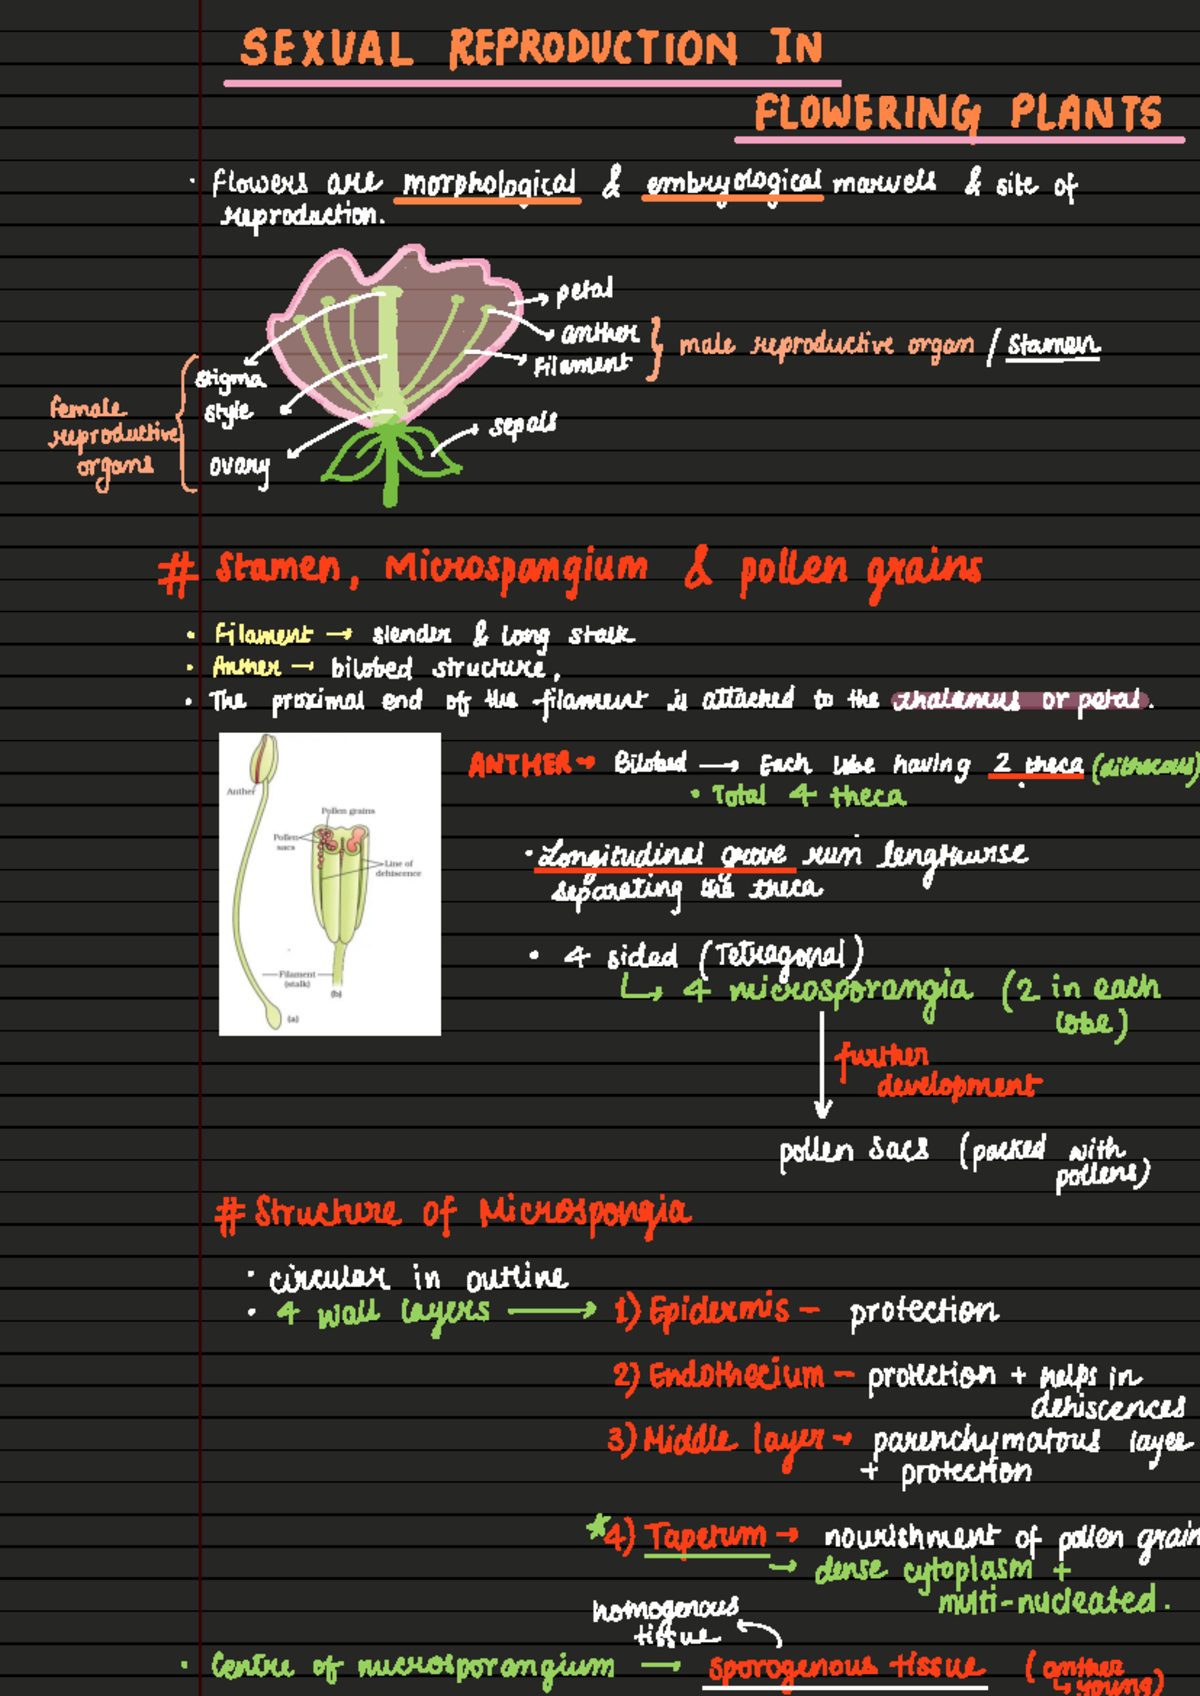 SEXUAL REPRODUCTION IN
FLOWERING PLANTS
· Flowers are morphological & embryological marvels & site of
reproduction.
petal
anther
filament
male reproductive organ / Stamen
stigma
style
ovary
female
reproductive
organs
sepals
# Stamen, Microspangium & pollen grains
· Filament → slender & long stalk
· Anther → bilobed structure,
· The proximal end of the filament is attached to the thalamus or petal.
Anther
Pollen grains
Pollen
sacs
Line of
dehiscence
Filament
(stalk)
(b)
(a)
ANTHER → Bilobed → Each lobe having 2 theca (dithecous)
· Total 4 theca
· Longitudinal grove run lengthwise
separating the theca
· 4 sided (Tetragonal)
↳ 4 microsporangia (2 in each
lobe)
further
development
pollen sacs (packed with
pollens)
# Structure of Microspongia
· circular in outline
· 4 wall layers → 1) Epidermis – protection
2) Endothecium – protection + helps in
dehiscences
3) Middle layer → parenchymatous layer
+ protection
*4) Tapetum → nourishment of pollen grain
→ dense cytoplasm +
multi-nucleated.
homogenous
tissue
· Centre of microsporangium → sporogenous tissue (anther
↳ young)